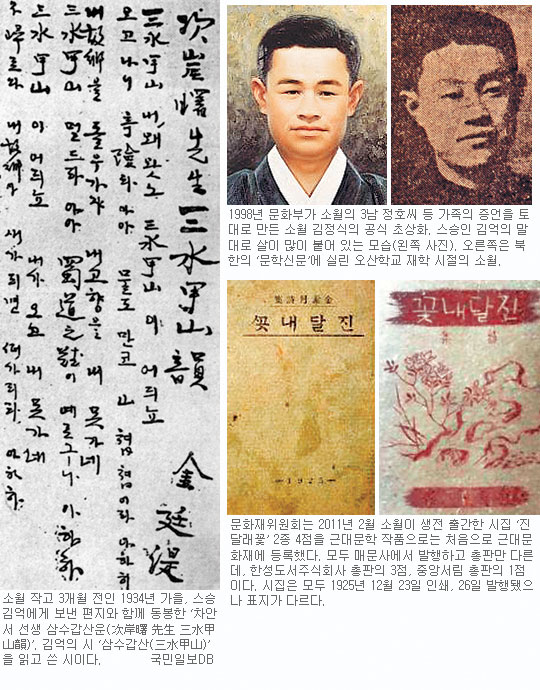 次岸曙先生三水甲山韻 金廷湜
三水甲山 내왜왓노 三水甲山이 어듸뇨
오고나니 奇險타 아아 물도 만코 山첩첩이라 아하하
내故鄕을 돌우가자 내고향을 내 못가네
三水甲山 멀드라 아아 蜀道之難이 예로구나 아하하
三水甲山이 어듸뇨 내가 오고 내 못가네
不歸로다 내故鄕아 새가되면 떠가리라 아하하
소월 작고 3개월 전인 1934년 가을, 스승
김억에게 보낸 편지와 함께 동봉한 '차안
서 선생 삼수갑산운(次岸曙 先生 三水甲
山韻)'. 김억의 시 '삼수갑산(三水甲山)'
을 읽고 쓴 시이다. 국민일보DB
1998년 문화부가 소월의 3남 정호씨 등 가족의 증언을 토
대로 만든 소월 김정식의 공식 초상화. 스승인 김억의 말
대로 살이 많이 붙어 있는 모습(왼쪽 사진). 오른쪽은 북
한의 '문학신문'에 실린 오산학교 재학 시절의 소월.
集詩月素金
꽃내달진
—1925—
꽃내달진
문화재위원회는 2011년 2월 소월이 생전 출간한 시집 '진
달래꽃' 2종 4점을 근대문학 작품으로는 처음으로 근대문
화재에 등록했다. 모두 매문사에서 발행하고 총판만 다른
데, 한성도서주식회사 총판의 3점, 중앙서림 총판의 1점
이다. 시집은 모두 1925년 12월 23일 인쇄, 26일 발행됐으
나 표지가 다르다.